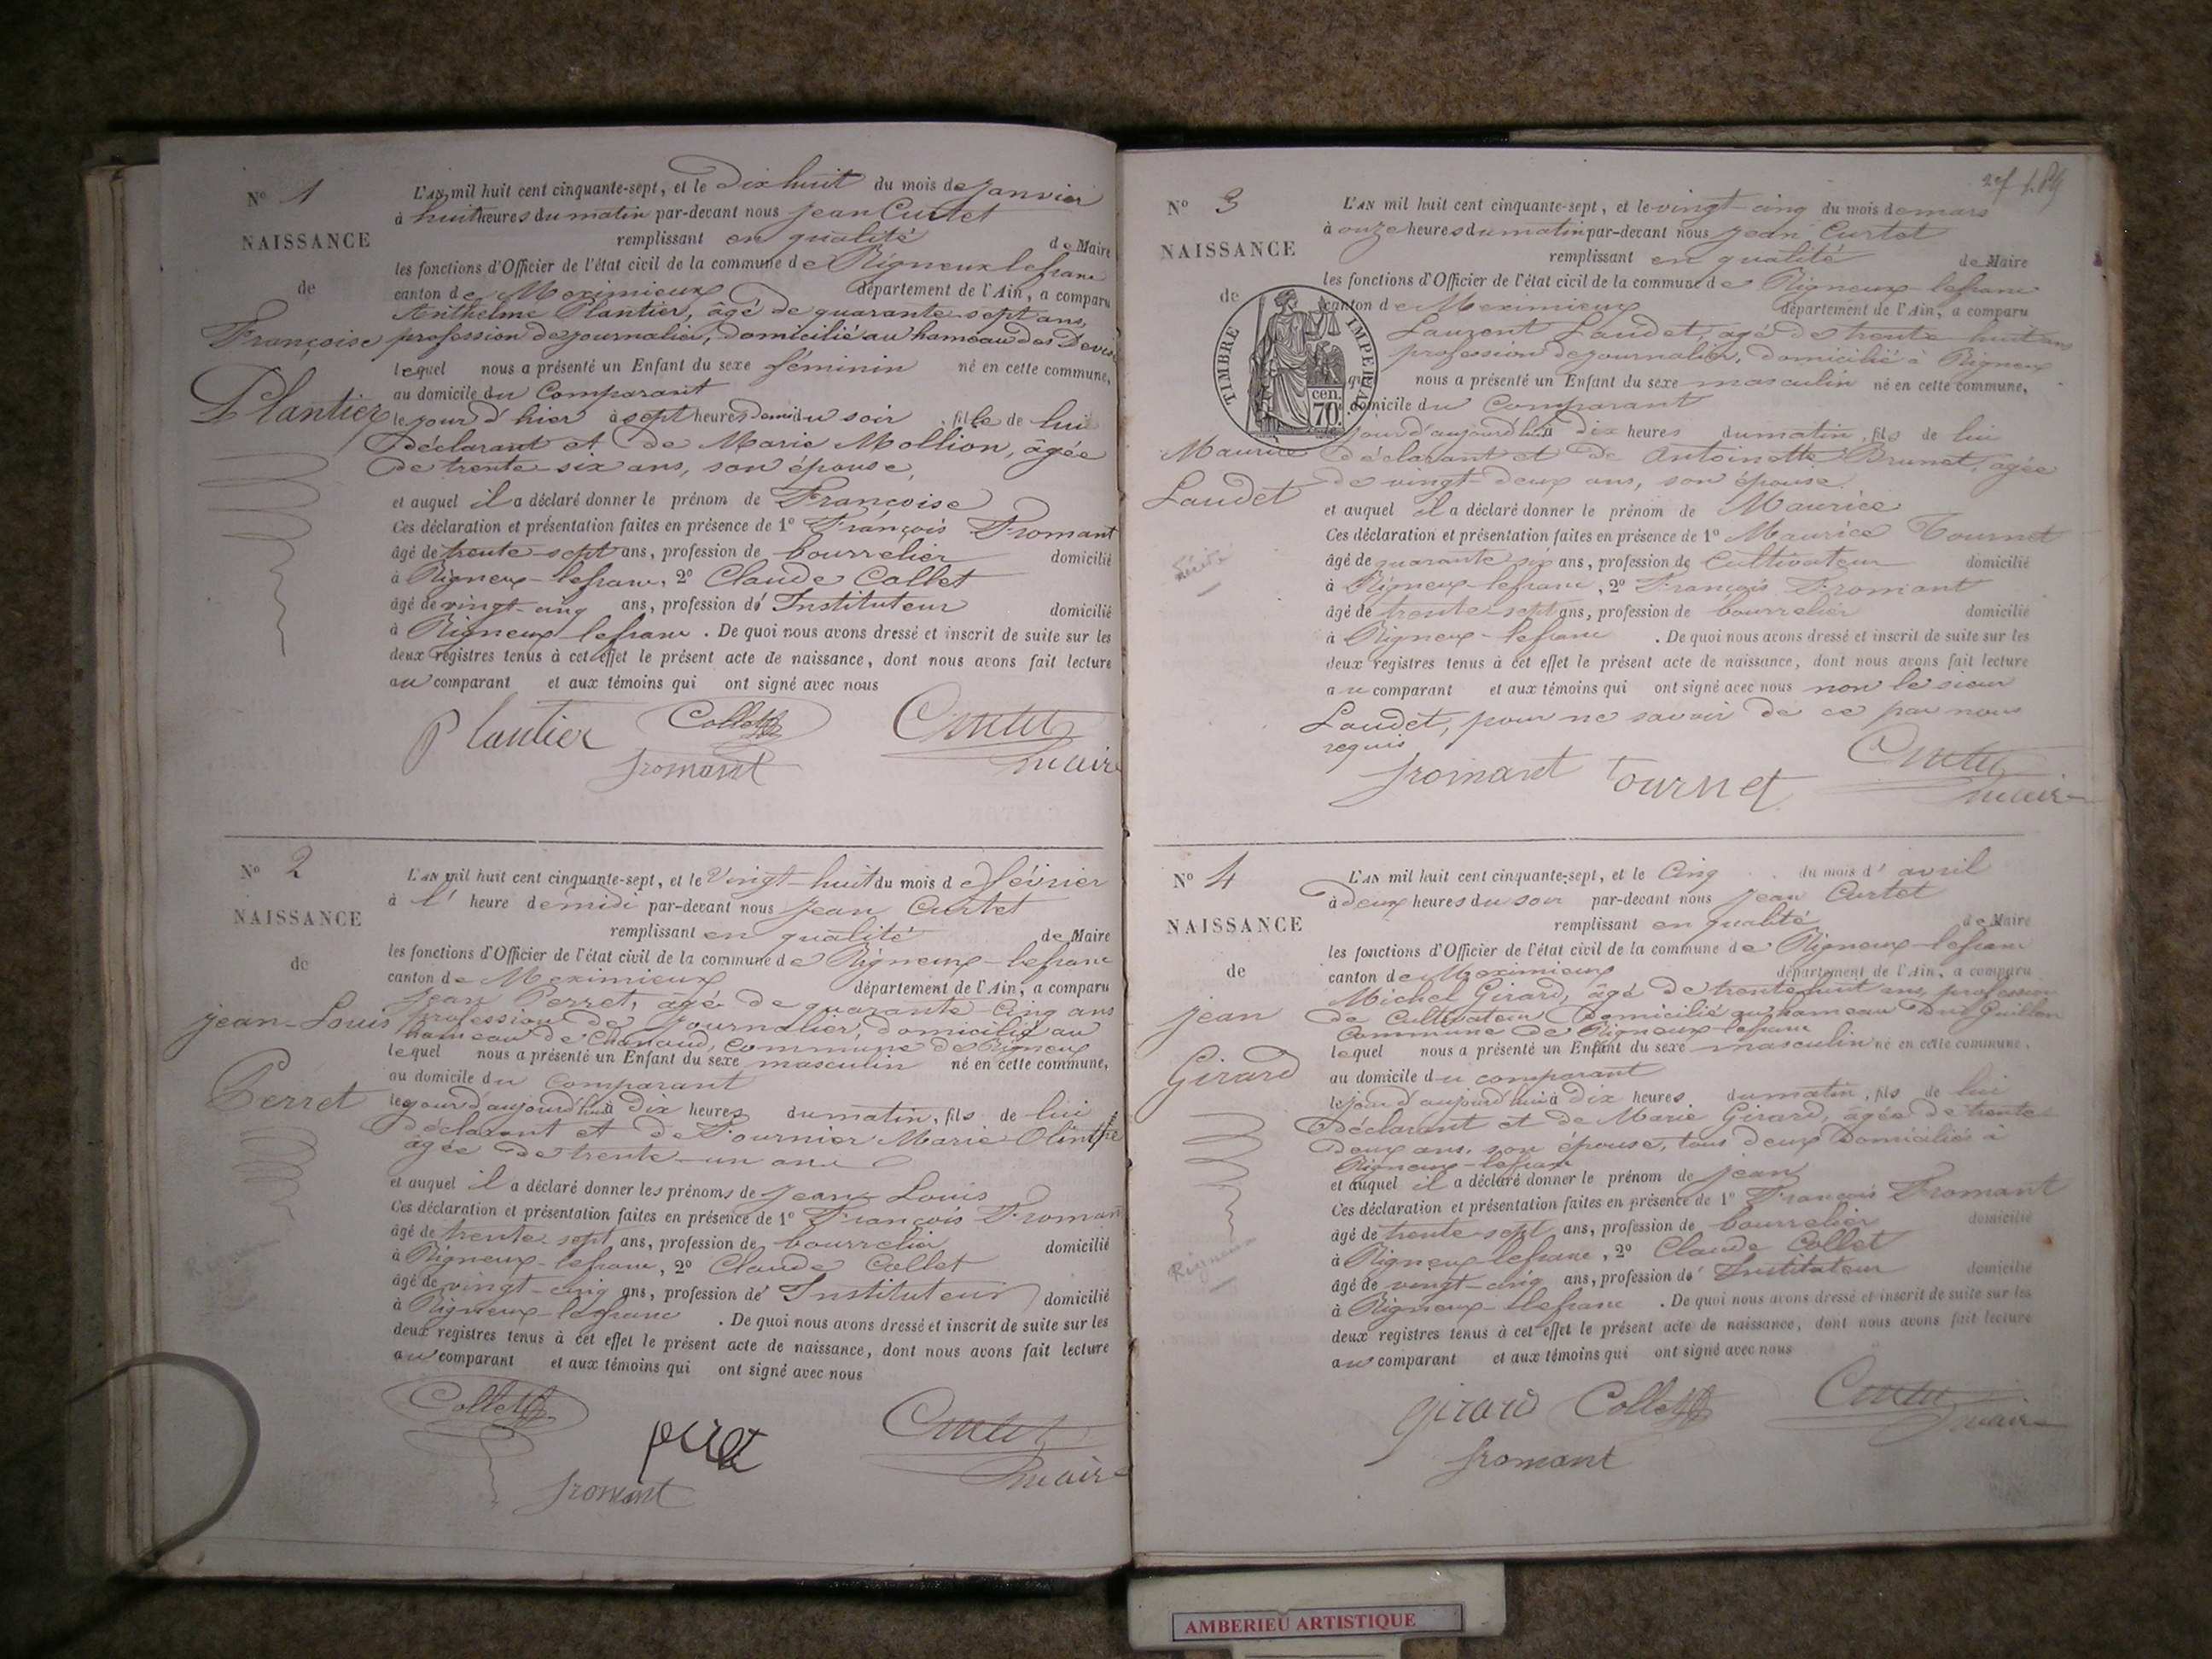 N° 1
NAISSANCE
de
Françoise
Plantier
L'AN mil huit cent cinquante-sept, et le Dix huit du mois de janvier
à huit heures du matin par-devant nous jean Curtet
remplissant en qualité de Maire
les fonctions d'Officier de l'état civil de la commune de Rigneux lefranc
canton de Meximieux département de l'Ain, a comparu
Anthelme Plantier, âgé de quarante sept ans,
profession de journalier, domicilié au hameau des
lequel nous a présenté un Enfant du sexe féminin né en cette commune,
au domicile du Comparant
le jour d'hier à sept heures demi du soir, fille de lui
déclarant et de Marie Mollion, âgée
de trente six ans, son épouse,
et auquel il a déclaré donner le prénom de Françoise
Ces déclaration et présentation faites en présence de 1° François Fromant
âgé de trente-sept ans, profession de bourrelier domicilié
à Rigneux-lefranc, 2° Claude Collet
âgé de vingt-cinq ans, profession d' Instituteur domicilié
à Rigneux-lefranc. De quoi nous avons dressé et inscrit de suite sur les
deux registres tenus à cet effet le présent acte de naissance, dont nous avons fait lecture
au comparant et aux témoins qui ont signé avec nous
Plantier Collet Curtet
fromant maire
N° 2
NAISSANCE
de
jean-Louis
Perret
L'AN mil huit cent cinquante-sept, et le Vingt-huit du mois de février
à l' heure de midi par-devant nous jean Curtet
remplissant en qualité de Maire
les fonctions d'Officier de l'état civil de la commune de Rigneux-lefranc
canton de Meximieux département de l'Ain, a comparu
jean Perret, âgé de quarante Cinq ans
profession de journalier, domicilié au
hameau de Chanaud, Commune de Rigneux
lequel nous a présenté un Enfant du sexe masculin né en cette commune,
au domicile du Comparant
le jour d'aujourd'hui à Dix heures du matin, fils de lui
déclarant et de Fournier Marie Olinthe
âgée de trente-un ans
et auquel il a déclaré donner les prénoms de jean Louis
Ces déclaration et présentation faites en présence de 1° François Fromant
âgé de trente sept ans, profession de bourrelier domicilié
à Rigneux-lefranc, 2° Claude Collet
âgé de vingt-cinq ans, profession d' Instituteur domicilié
à Rigneux-lefranc. De quoi nous avons dressé et inscrit de suite sur les
deux registres tenus à cet effet le présent acte de naissance, dont nous avons fait lecture
au comparant et aux témoins qui ont signé avec nous
Collet perret Curtet
fromant maire
N° 3
NAISSANCE
de
TIMBRE IMPERIAL
70 cen.
Maurice
Laudet
L'AN mil huit cent cinquante-sept, et le vingt-cinq du mois de mars
à onze heures du matin par-devant nous jean Curtet
remplissant en qualité de Maire
les fonctions d'Officier de l'état civil de la commune de Rigneux lefranc
canton de Meximieux département de l'Ain, a comparu
Laurent Laudet, âgé de trente-huit ans
profession de journalier, domicilié à Rigneux
qui nous a présenté un Enfant du sexe masculin né en cette commune,
domicile du Comparant
jour d'aujourd'hui à dix heures du matin, fils de lui
déclarant et de Antoinette Brunet, âgée
de vingt-deux ans, son épouse.
et auquel il a déclaré donner le prénom de Maurice
Ces déclaration et présentation faites en présence de 1° Maurice Tournet
âgé de quarante six ans, profession de Cultivateur domicilié
à Rigneux-lefranc, 2° François Fromant
âgé de trente-sept ans, profession de bourrelier domicilié
à Rigneux-lefranc. De quoi nous avons dressé et inscrit de suite sur les
deux registres tenus à cet effet le présent acte de naissance, dont nous avons fait lecture
au comparant et aux témoins qui ont signé avec nous non le sieur
Laudet, pour ne savoir de ce par nous
requis
fromant Tournet Curtet
maire
N° 4
NAISSANCE
de
jean
Girard
Rigneux
L'AN mil huit cent cinquante-sept, et le Cinq du mois d' avril
à Deux heures du soir par-devant nous jean Curtet
remplissant en qualité de Maire
les fonctions d'Officier de l'état civil de la commune de Rigneux-lefranc
canton de Meximieux département de l'Ain, a comparu
Michel Girard, âgé de trente huit ans, profession
de Cultivateur Domicilié au hameau Du Guillon
Commune de Rigneux-lefranc
lequel nous a présenté un Enfant du sexe masculin né en cette commune,
au domicile du comparant
le jour d'aujourd'hui à dix heures du matin, fils de lui
Déclarant et de Marie Girard, âgée de trente
Deux ans, son épouse, tous deux Domiciliés à
Rigneux-lefranc
et auquel il a déclaré donner le prénom de jean
Ces déclaration et présentation faites en présence de 1° François Fromant
âgé de trente-sept ans, profession de bourrelier domicilié
à Rigneux-lefranc, 2° Claude Collet
âgé de vingt-cinq ans, profession d' Instituteur domicilié
à Rigneux-lefranc. De quoi nous avons dressé et inscrit de suite sur les
deux registres tenus à cet effet le présent acte de naissance, dont nous avons fait lecture
au comparant et aux témoins qui ont signé avec nous
girard Collet Curtet
fromant maire
AMBERIEU ARTISTIQUE